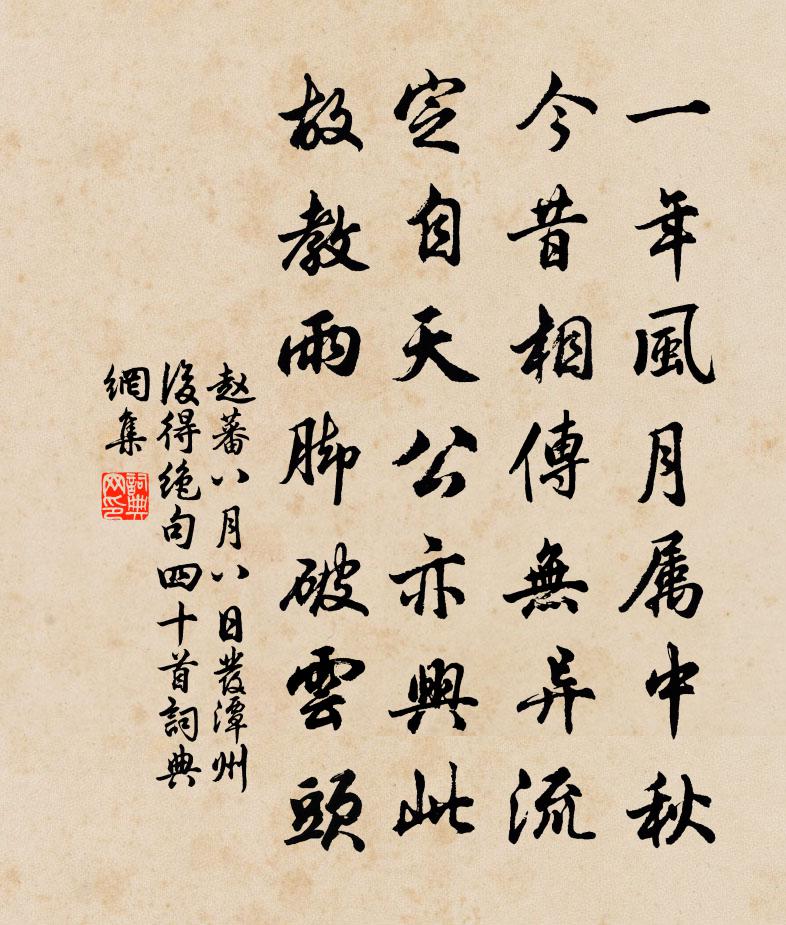 一年風月属中秋
今昔相傳無异流
定自天公亦興此
故教雨脚破雲頭
赵蕃八月八日發潭州
後得绝句四十首詞典
網集
詞典
网印